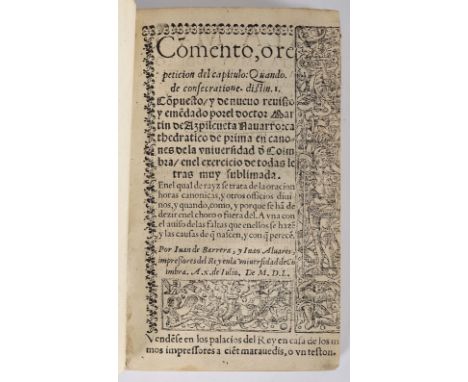 Cõmento, o re
peticion del capitulo: Quando.
de consecratione. distin. 1.
Cõpuesto/ y de nueuo reuisto
y emẽdado por el doctor Mar
tin de Azpilcueta Nauarro: ca
thedratico de prima en cano-
nes de la vniuersidad õ Coim
bra/ en el exercicio de todas le
tras muy sublimada.
En el qual de rayz se trata de la oracion
horas canonicas, y otros officios diui
nos, y quando, como, y porque se hã de
dezir en el choro o fuera del. A vna con
el auiso de las faltas que en ellos se hazẽ
y las causas de q̃ nascen, y con q̃ perecẽ.
Por Iuan de Barrera, y Iuan Aluares
impressores del Rey en la vniuersidad de Co
imbra. A. x. de Iulio. De M. D. L.
Vendẽse en los palacios del Rey en casa de los mis
mos impressores a ciẽt marauedis, o vn teston.